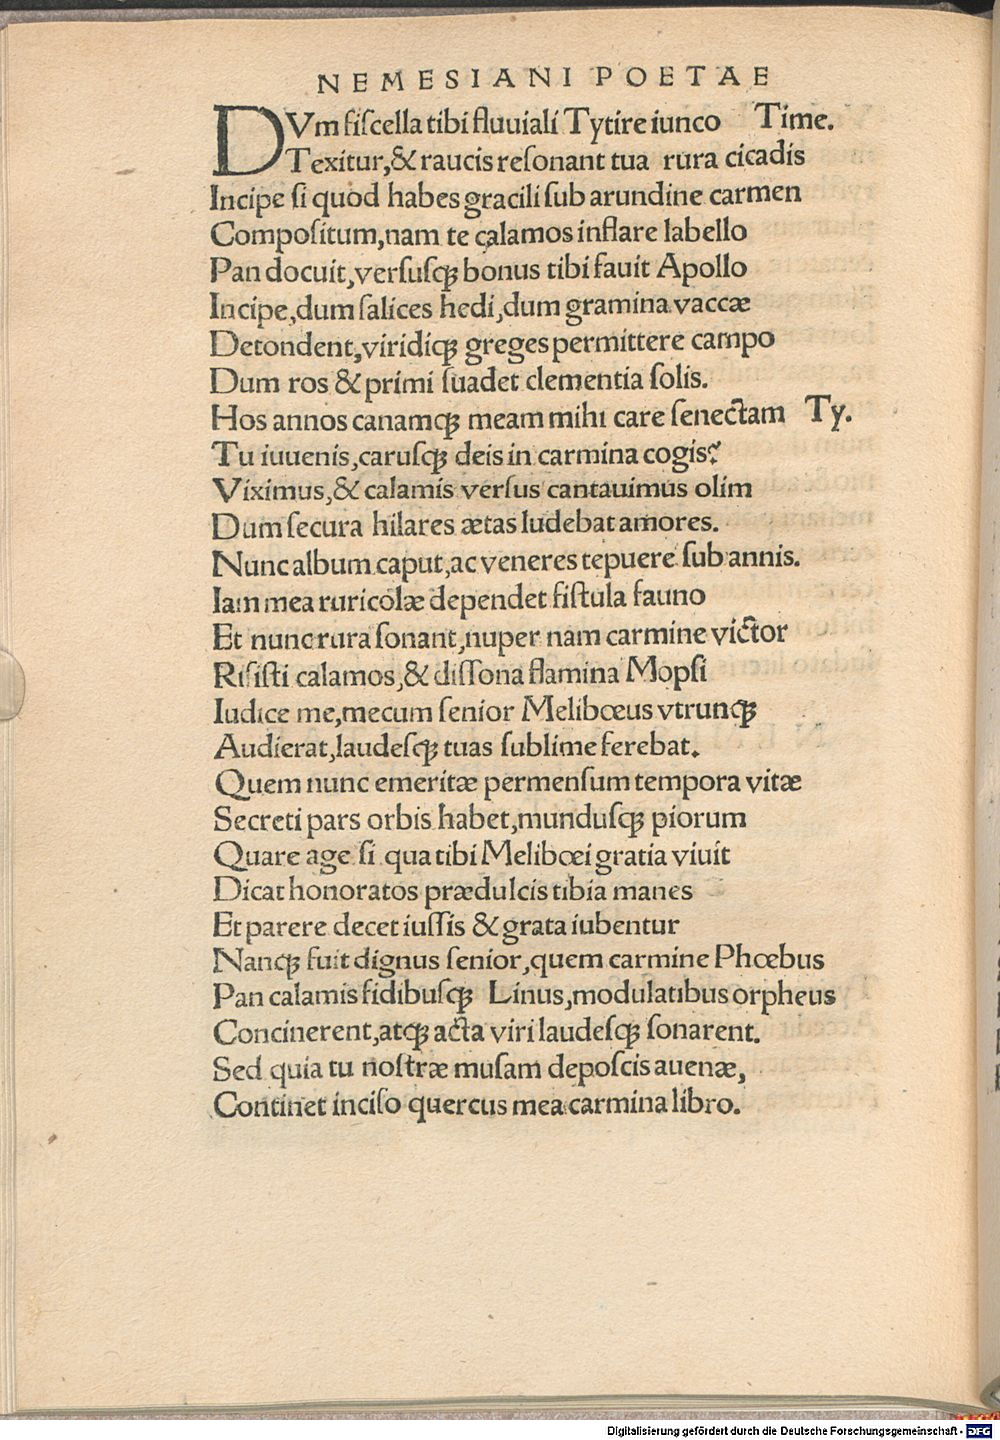 NEMESIANI POETAE
DVm fiſcella tibi fluuiali Tytire iunco Time.
Texitur,& raucis reſonant tua rura cicadis
Incipe ſi quod habes gracili ſub arundine carmen
Compoſitum,nam te calamos inflare labello
Pan docuit,verſuſqꝫ bonus tibi fauit Apollo
Incipe,dum ſalices hedi,dum gramina vaccæ
Detondent,viridiqꝫ greges permittere campo
Dum ros & primi ſuadet clementia ſolis.
Hos annos canamqꝫ meam mihi care ſenectam Ty.
Tu iuuenis,caruſqꝫ deis in carmina cogis?
Viximus,& calamis verſus cantauimus olim
Dum ſecura hilares ætas ludebat amores.
Nunc album caput,ac veneres tepuere ſub annis.
Iam mea ruricolæ dependet fiſtula fauno
Et nunc rura ſonant,nuper nam carmine victor
Riſiſti calamos,& diſſona flamina Mopſi
Iudice me,mecum ſenior Melibœus vtrunqꝫ
Audierat,laudeſqꝫ tuas ſublime ferebat.
Quem nunc emeritæ permenſum tempora vitæ
Secreti pars orbis habet,munduſqꝫ piorum
Quare age ſi qua tibi Melibœi gratia viuit
Dicat honoratos prædulcis tibia manes
Et parere decet iuſſis & grata iubentur
Nanqꝫ fuit dignus ſenior,quem carmine Phœbus
Pan calamis fidibuſqꝫ Linus,modulatibus orpheus
Concinerent,atqꝫ acta viri laudeſqꝫ ſonarent.
Sed quia tu noſtræ muſam depoſcis auenæ,
Continet inciſo quercus mea carmina libro.
Digitalisierung gefördert durch die Deutsche Forschungsgemeinschaft - DFG